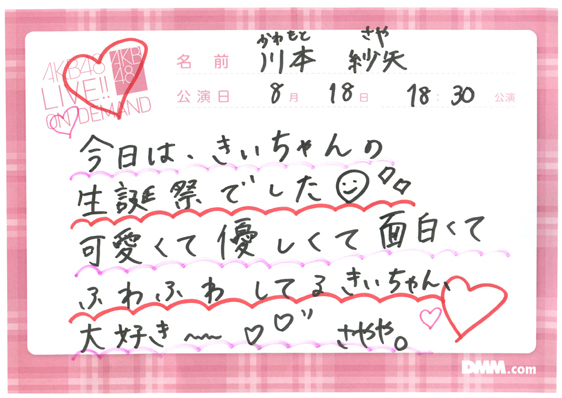 AKB48
LIVE!!
ON DEMAND
AKB
48
かわもと さや
名前 川本 紗矢
公演日 8月 18日 18:30 公演
今日は、きぃちゃんの
生誕祭でした
可愛くて優しくて面白くて
ふわふわしてるきぃちゃん、
大好き〜〜 さやや。
DMM.com